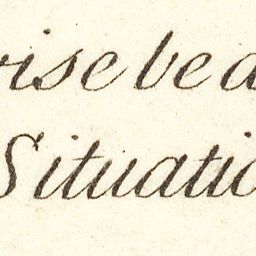 rise be a
Situatio